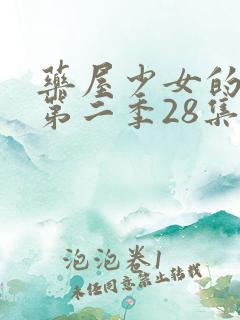 药屋少女的
第二季28集
泡泡卷1
未经同意禁止转载